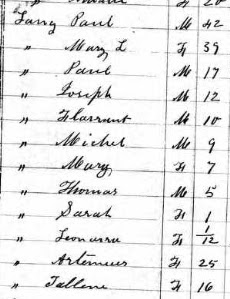 Larry Paul M 42
" Mary L F 39
" Paul M 17
" Joseph M 12
" Florrant M 10
" Michel M 9
" Mary F 7
" Thomas M 5
" Sarah F 1
" Leonarra F 1/12
" Artemus F 25
" Tallene F 16